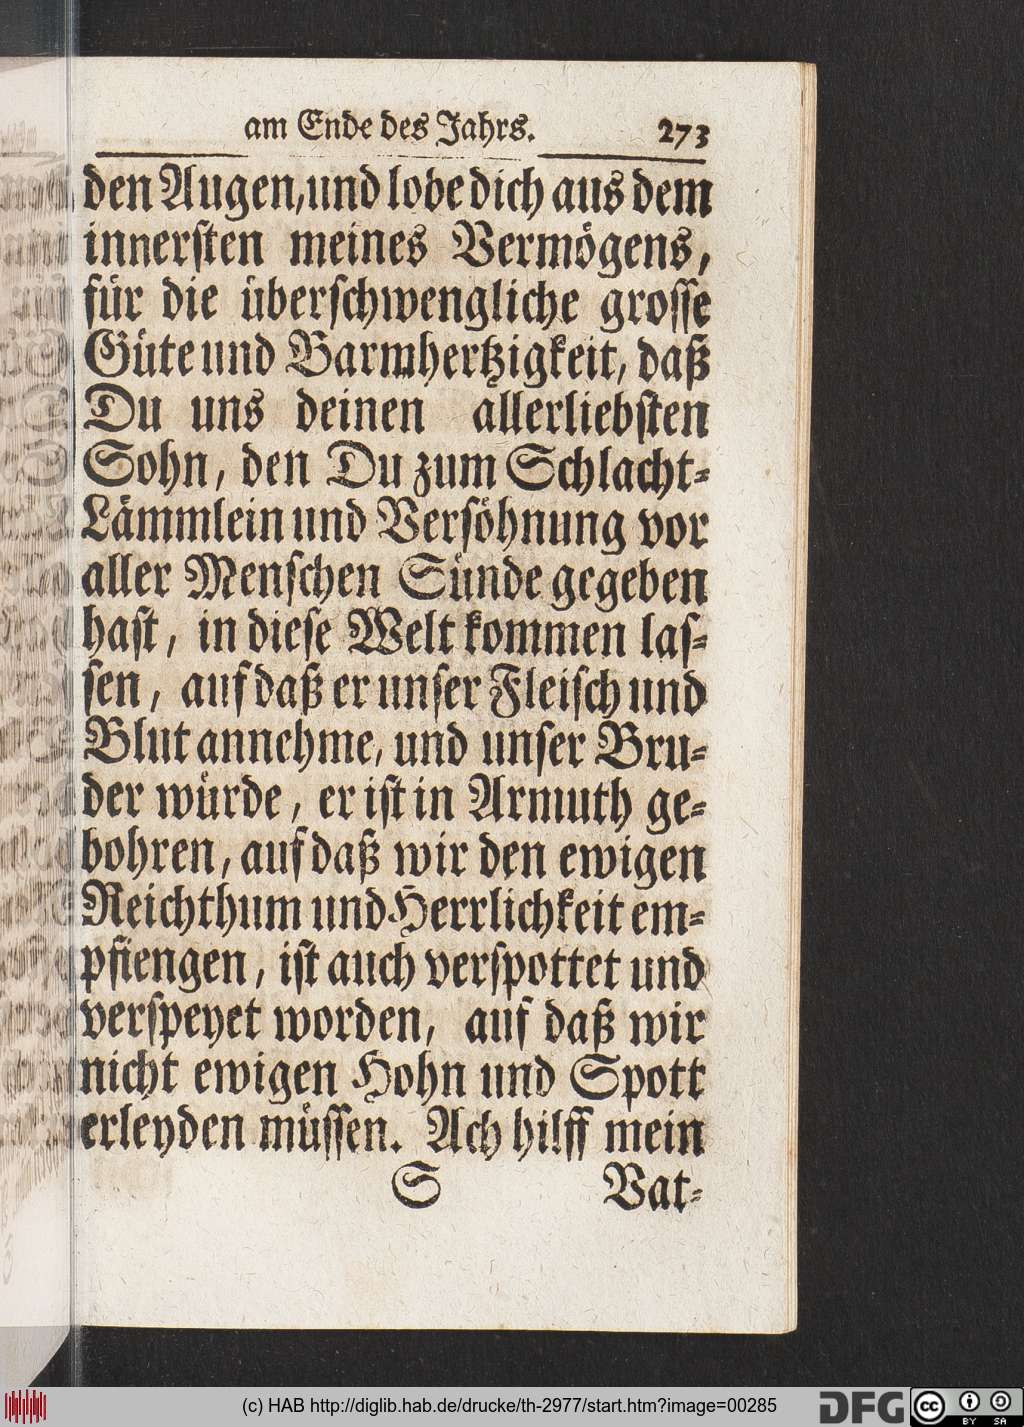 am Ende des Jahrs. 273
den Augen, und lobe dich aus dem
innersten meines Vermögens,
für die überschwengliche grosse
Güte und Barmhertzigkeit, daß
Du uns deinen allerliebsten
Sohn, den Du zum Schlacht-
Lämmlein und Versöhnung vor
aller Menschen Sünde gegeben
hast, in diese Welt kommen las-
sen, auf daß er unser Fleisch und
Blut annehme, und unser Bru-
der würde, er ist in Armuth ge-
bohren, auf daß wir den ewigen
Reichthum und Herrlichkeit em-
pfiengen, ist auch verspottet und
verspeyet worden, auf daß wir
nicht ewigen Hohn und Spott
erleyden müssen. Ach hilff mein
S Vat-
(c) HAB http://diglib.hab.de/drucke/th-2977/start.htm?image=00285
DFG
cc BY SA